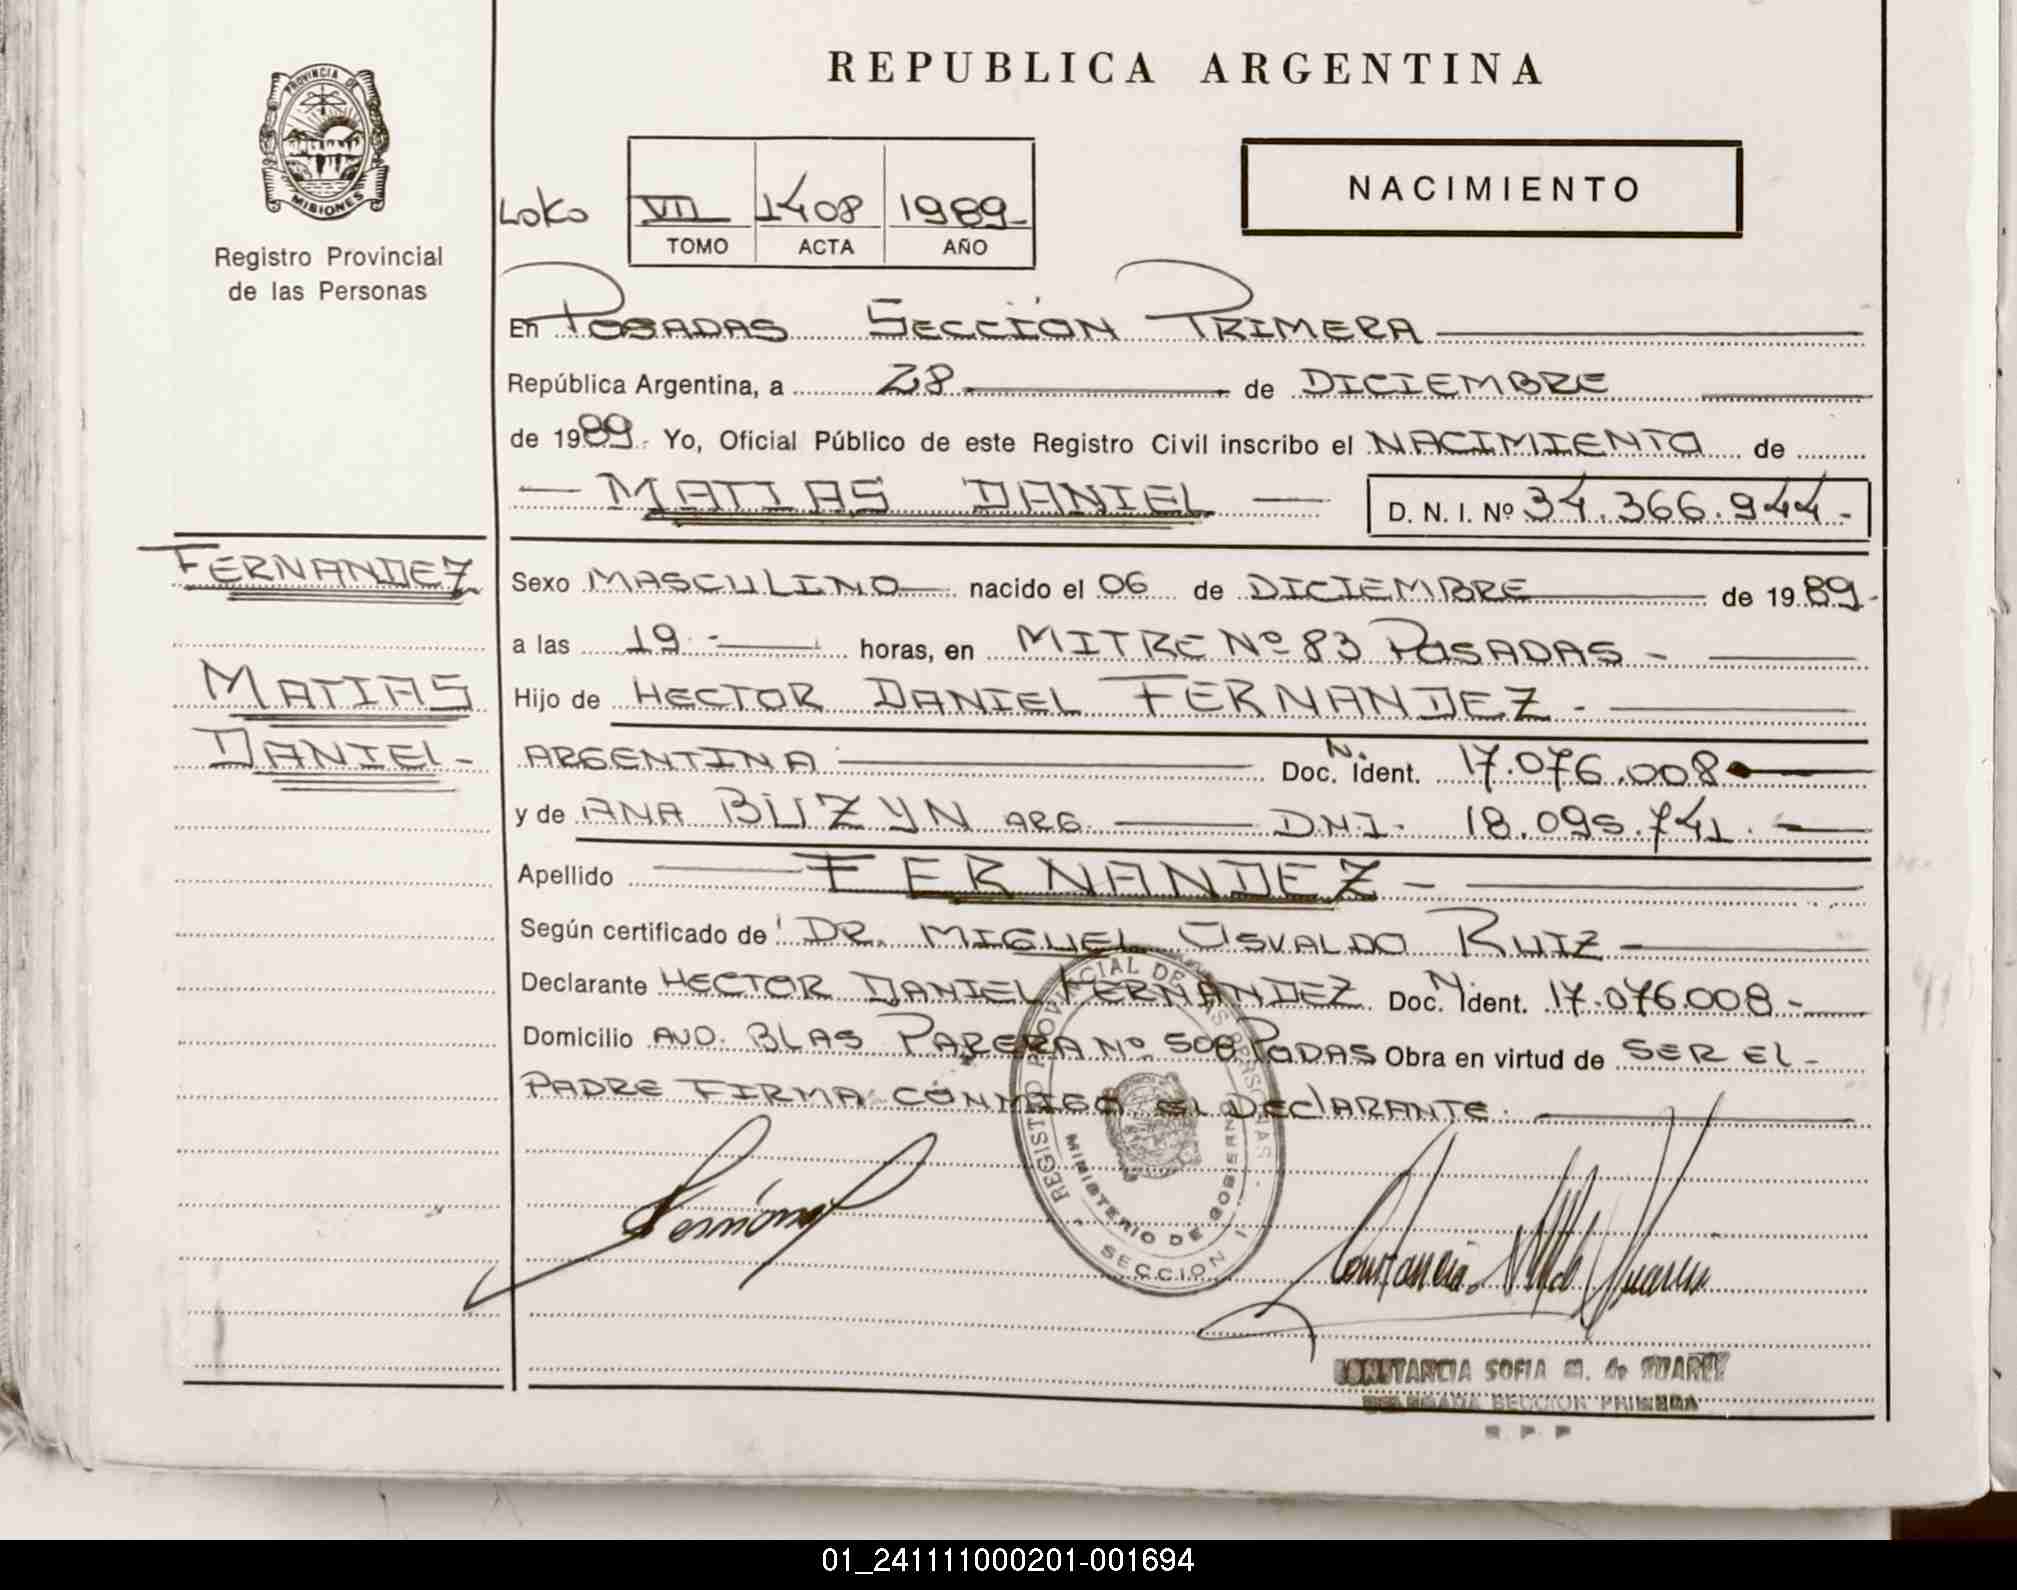 REPUBLICA ARGENTINA
PROVINCIA DE
MISIONES
Registro Provincial
de las Personas
NACIMIENTO
Loko VII 1408 1989-
TOMO ACTA AÑO
En POSADAS SECCION PRIMERA
República Argentina, a 28 de DICIEMBRE
de 1989. Yo, Oficial Público de este Registro Civil inscribo el NACIMIENTO de
— MATIAS DANIEL — D. N. I. Nº 34.366.944-
FERNANDEZ
MATIAS
DANIEL-
Sexo MASCULINO nacido el 06 de DICIEMBRE de 1989-
a las 19 - horas, en MITRE Nº 83 POSADAS -
Hijo de HECTOR DANIEL FERNANDEZ -
ARGENTINA Doc. N. Ident. 17.076.008
y de ANA BUZYN ARG. DNI. 18.095.741. -
Apellido FERNANDEZ -
Según certificado de DR. MIGUEL OSVALDO RUIZ
Declarante HECTOR DANIEL FERNANDEZ Doc. N Ident. 17.076.008 -
Domicilio AVD. BLAS PARERA Nº 508 PODAS Obra en virtud de SER EL -
PADRE FIRMA CONMIGO EL DECLARANTE.
REGISTRO PROVINCIAL DE LAS PERSONAS
MINISTERIO DE GOBIERNO
SECCION 1
CONSTANCIA SOFIA M. de SUAREZ
DELEGADA SECCION PRIMERA
R. P. P
01_241111000201-001694